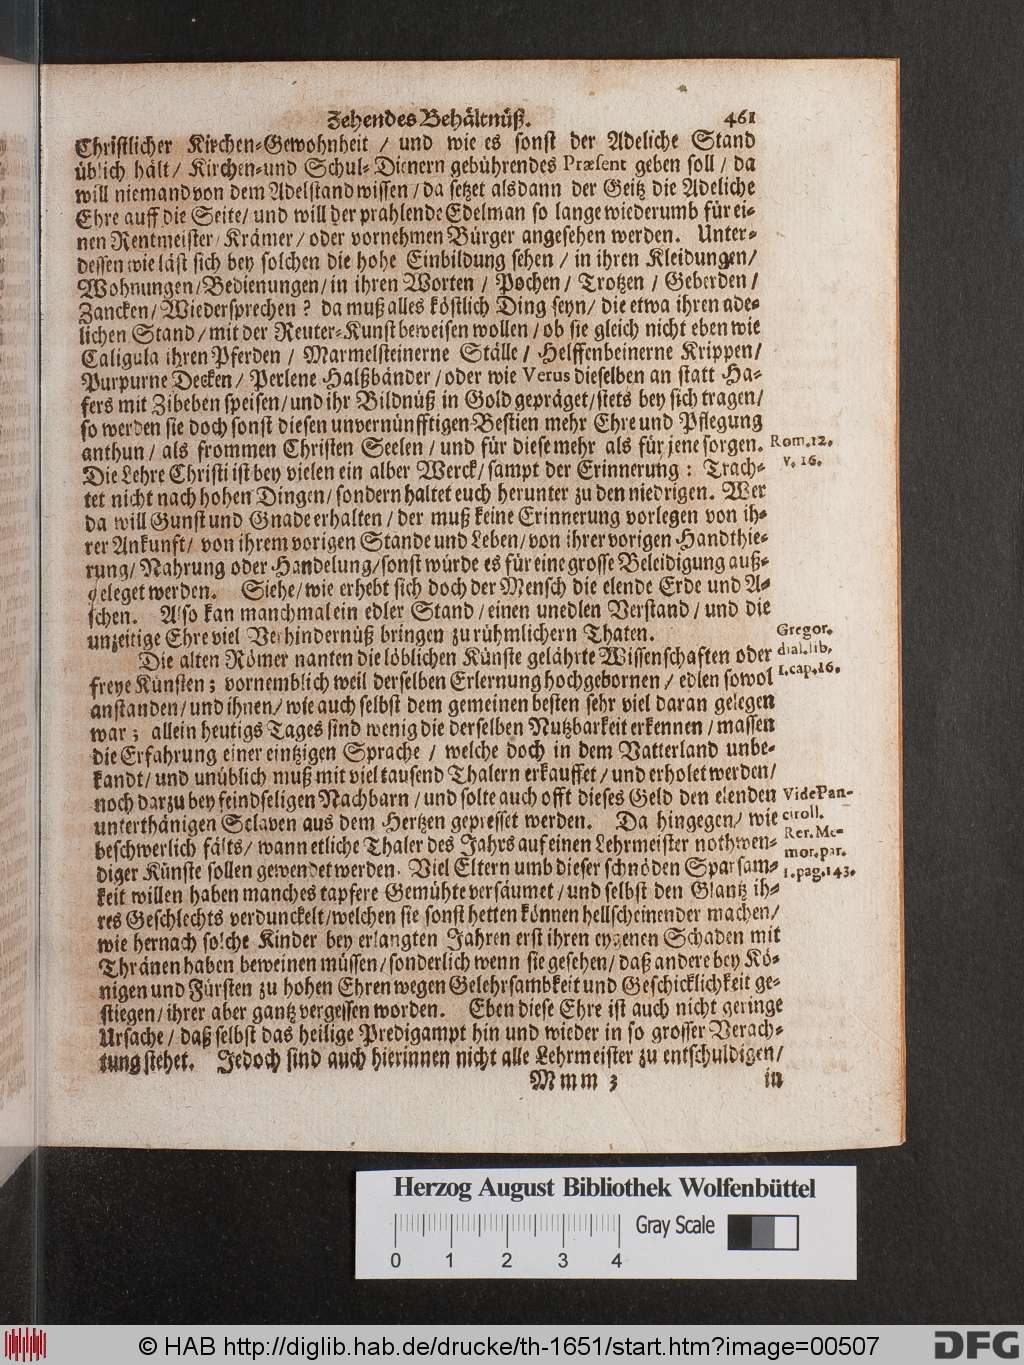 Zehendes Behältnüß. 461
Christlicher Kirchen-Gewohnheit / und wie es sonst der Adeliche Stand
üblich hält / Kirchen-und Schul-Dienern gebührendes Præsent geben soll / da
will niemand von dem Adelstand wissen / da setzet alsdann der Geitz die Adeliche
Ehre auff die Seite / und will der prahlende Edelman so lange wiederumb für ei-
nen Rentmeister / Krämer / oder vornehmen Bürger angesehen werden. Unter-
dessen wie läst sich bey solchen die hohe Einbildung sehen / in ihren Kleidungen /
Wohnungen / Bedienungen / in ihren Worten / Pochen / Trotzen / Geberden /
Zancken / Wiedersprechen ? da muß alles köstlich Ding seyn / die etwa ihren ade-
lichen Stand / mit der Reuter-Kunst beweisen wollen / ob sie gleich nicht eben wie
Caligula ihren Pferden / Marmelsteinerne Ställe / Helffenbeinerne Krippen /
Purpurne Decken / Perlene Halßbänder / oder wie Verus dieselben an statt Ha-
fers mit Zibeben speisen / und ihr Bildnüß in Gold gepräget / stets bey sich tragen /
so werden sie doch sonst diesen unvernünfftigen-Bestien mehr Ehre und Pflegung
anthun / als frommen Christen Seelen / und für diese mehr als für jene sorgen.
Rom. 12.
v. 16.
Die Lehre Christi ist bey vielen ein alber Werck / sampt der Erinnerung : Trach-
tet nicht nach hohen Dingen / sondern haltet euch herunter zu den niedrigen. Wer
da will Gunst und Gnade erhalten / der muß keine Erinnerung vorlegen von ih-
rer Ankunft / von ihrem vorigen Stande und Leben / von ihrer vorigen Handthie-
rung / Nahrung oder Handelung / sonst würde es für eine grosse Beleidigung auß-
geleget werden. Siehe / wie erhebt sich doch der Mensch die elende Erde und A-
schen. Also kan manchmal ein edler Stand / einen unedlen Verstand / und die
unzeitige Ehre viel Verhindernüß bringen zu rühmlichern Thaten.
Gregor.
dial. lib.
1. cap. 16.
Die alten Römer nanten die löblichen Künste gelährte Wissenschaften oder
freye Künsten ; vornemblich weil derselben Erlernung hochgebornen / edlen sowol
anstanden / und ihnen / wie auch selbst dem gemeinen besten sehr viel daran gelegen
war ; allein heutigs Tages sind wenig die derselben Nutzbarkeit erkennen / massen
die Erfahrung einer eintzigen Sprache / welche doch in dem Vatterland unbe-
kandt / und unüblich muß mit viel tausend Thalern erkauffet / und erholet werden /
noch darzu bey feindseligen Nachbarn / und solte auch offt dieses Geld den elenden
unterthänigen Sclaven aus dem Hertzen gepresset werden. Da hingegen / wie
beschwerlich fälts / wann etliche Thaler des Jahrs auf einen Lehrmeister nothwen-
diger Künste sollen gewendet werden. Viel Eltern umb dieser schnöden Sparsam-
Vide Pan-
ciroll.
Rer. Me-
mor. par.
1. pag. 143.
keit willen haben manches tapfere Gemühte versäumet / und selbst den Glantz ih-
res Geschlechts verdunckelt / welchen sie sonst hetten können hellscheinender machen /
wie hernach solche Kinder bey erlangten Jahren erst ihren eygenen Schaden mit
Thränen haben beweinen müssen / sonderlich wenn sie gesehen / daß andere bey Kö-
nigen und Fürsten zu hohen Ehren wegen Gelehrsambkeit und Geschicklichkeit ge-
stiegen / ihrer aber gantz vergessen worden. Eben diese Ehre ist auch nicht geringe
Ursache / daß selbst das heilige Predigampt hin und wieder in so grosser Verach-
tung stehet. Jedoch sind auch hierinnen nicht alle Lehrmeister zu entschuldigen /
Mmm 3 in
Herzog August Bibliothek Wolfenbüttel
Gray Scale
0 1 2 3 4
© HAB http://diglib.hab.de/drucke/th-1651/start.htm?image=00507
DFG